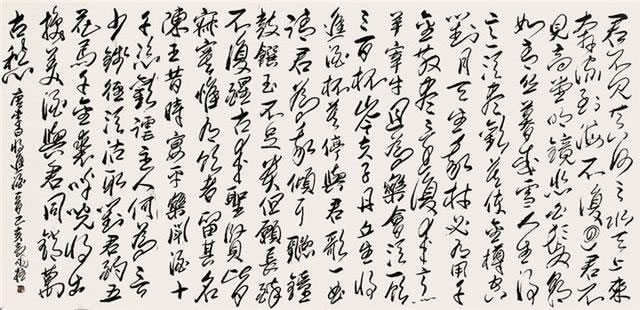 君不見黃河之水天上來
奔流到海不復回君不
見高堂明鏡悲白髮朝
如青絲暮成雪人生得
意須盡歡莫使金樽空
對月天生我材必有用千
金散盡還復來烹
羊宰牛且為樂會須一飲
三百杯岑夫子丹丘生將
進酒杯莫停與君歌一曲
請君為我傾耳聽鐘
鼓饌玉不足貴但願長醉
不復醒古來聖賢皆
寂寞惟有飲者留其名
陳王昔時宴平樂斗酒十
千恣歡謔主人何為言
少錢徑須沽取對君酌五
花馬千金裘呼兒將出
換美酒與君同銷萬
古愁
唐李白將進酒